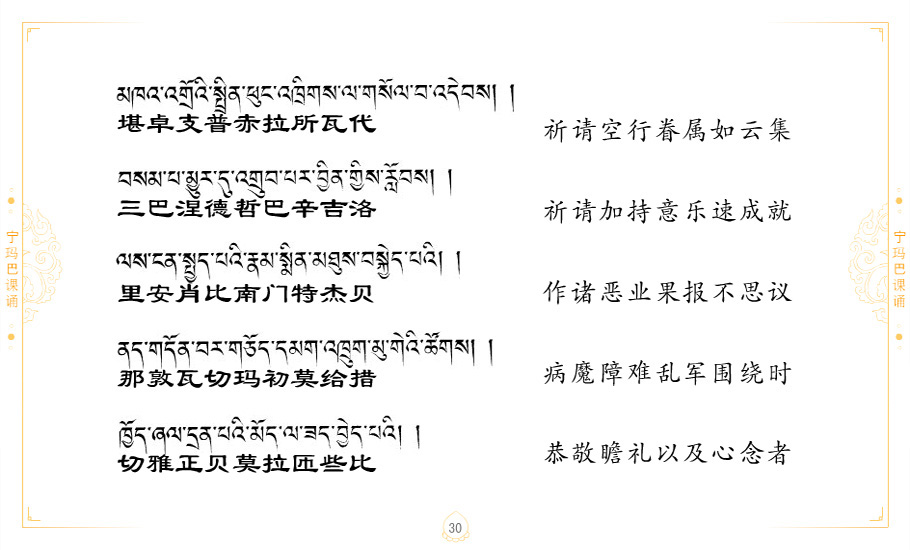 མཁའ་འགྲོའི་སྤྲིན་ཕུང་འཁྲིགས་ལ་གསོལ་བ་འདེབས། །
堪卓支普赤拉所瓦代
祈请空行眷属如云集
བསམ་པ་མྱུར་དུ་འགྲུབ་པར་བྱིན་གྱིས་རློབས། །
三巴涅德哲巴辛吉洛
祈请加持意乐速成就
ལས་ངན་སྤྱད་པའི་རྣམ་སྨིན་མཐུས་བསྐྱེད་པའི། །
里安肖比南门特杰贝
作诸恶业果报不思议
ནད་གདོན་བར་གཅོད་དམག་འཁྲུག་མུ་གེའི་ཚོགས། །
那敦瓦切玛初莫给措
病魔障难乱军围绕时
ཁྱོད་ཞལ་དྲན་པའི་མོད་ལ་ཟད་བྱེད་པའི། །
切雅正贝莫拉匝些比
恭敬瞻礼以及心念者
宁玛巴课诵
宁玛巴课诵
30